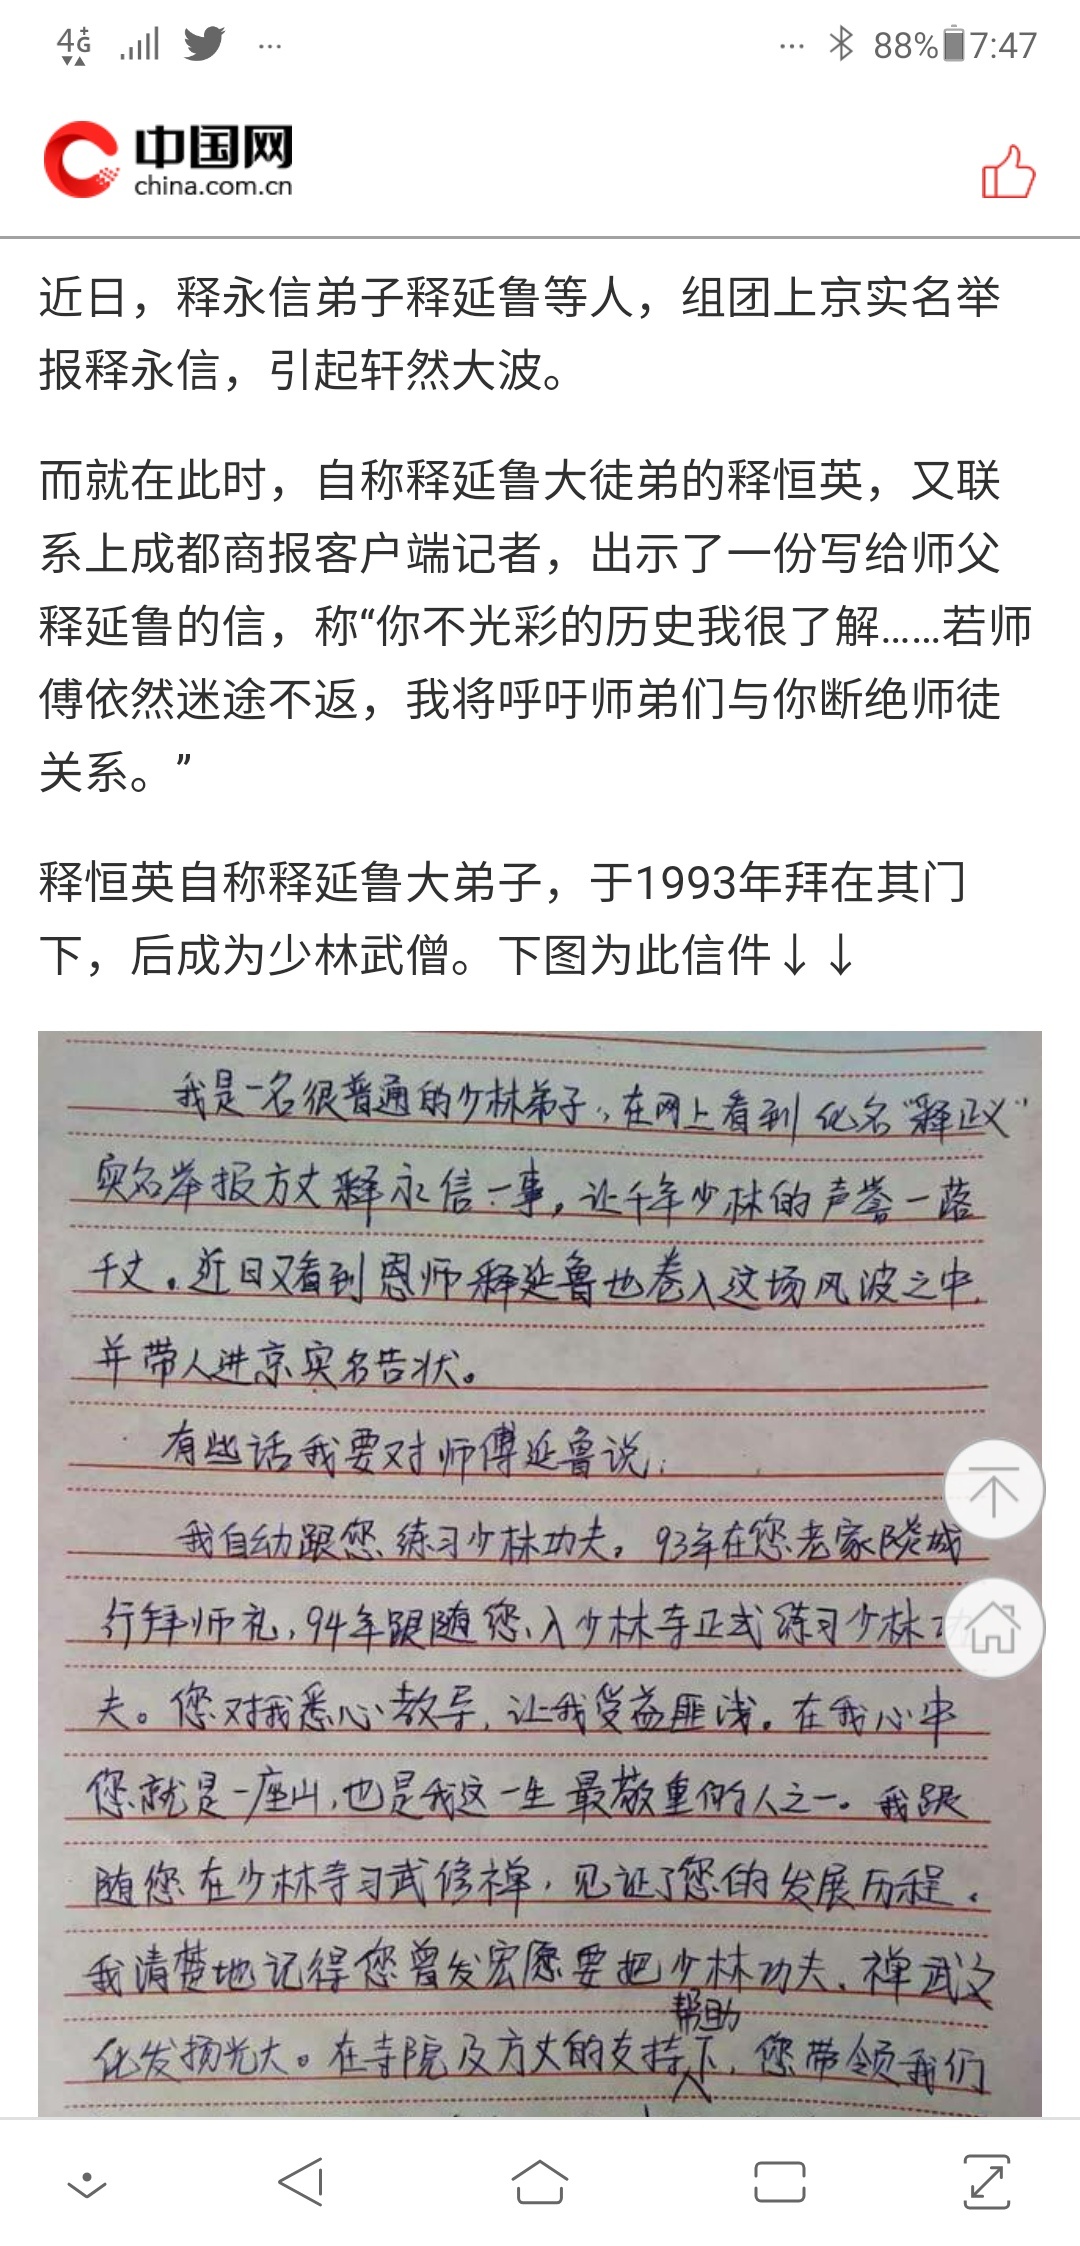 4G
88% 7:47
中国网
china.com.cn
近日，释永信弟子释延鲁等人，组团上京实名举
报释永信，引起轩然大波。
而就在此时，自称释延鲁大徒弟的释恒英，又联
系上成都商报客户端记者，出示了一份写给师父
释延鲁的信，称“你不光彩的历史我很了解……若师
傅依然迷途不返，我将呼吁师弟们与你断绝师徒
关系。”
释恒英自称释延鲁大弟子，于1993年拜在其门
下，后成为少林武僧。下图为此信件↓↓
我是一名很普通的少林弟子，在网上看到化名“释正义”
实名举报方丈释永信一事，让千年少林的声誉一落
千丈。近日又看到恩师释延鲁也卷入这场风波之中，
并带人进京实名告状。
有些话我要对师傅延鲁说：
我自幼跟您练习少林功夫，93年在您老家陵城
行拜师礼，94年跟随您入少林寺正式练习少林功
夫。您对我悉心教导，让我受益匪浅。在我心中
您就是一座山，也是我这一生最敬重的人之一。我跟
随您在少林寺习武修禅，见证了您的发展历程。
我清楚地记得您曾发宏愿要把少林功夫、禅武文
化发扬光大。在寺院及方丈的支持帮助下，您带领我们